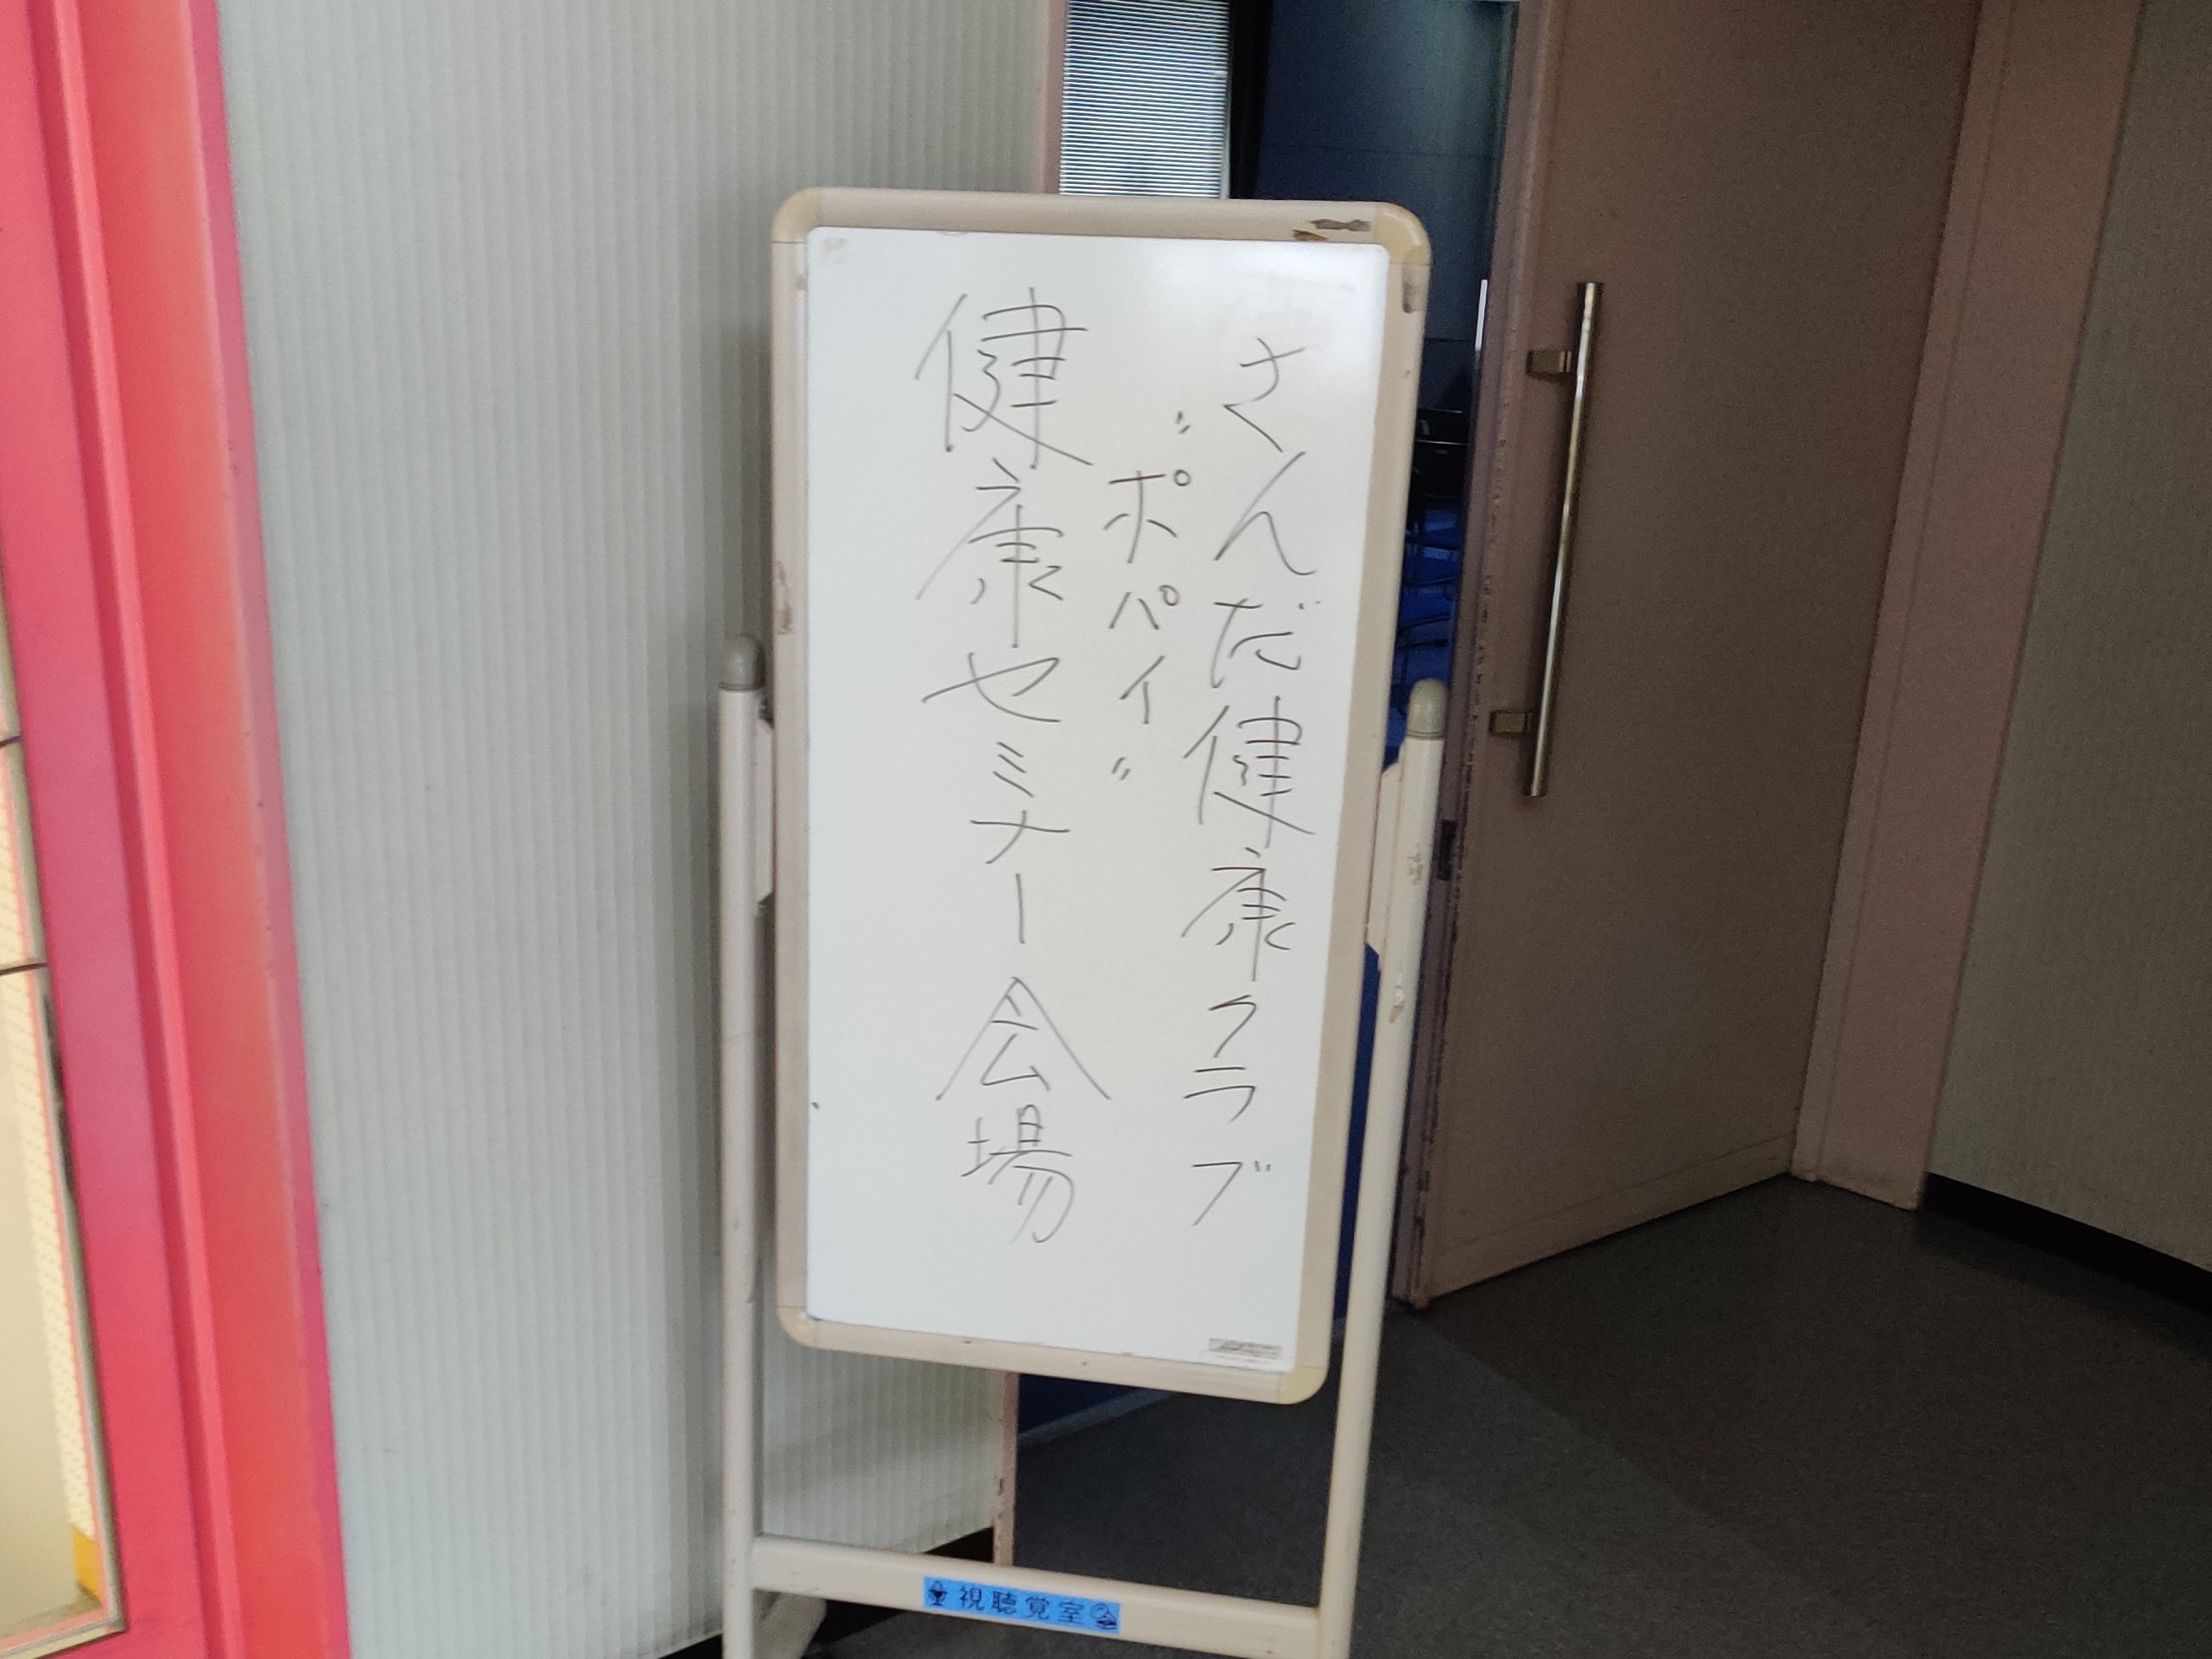 さんだ健康クラブ
〝ポパイ〟
健康セミナー会場
視聴覚室